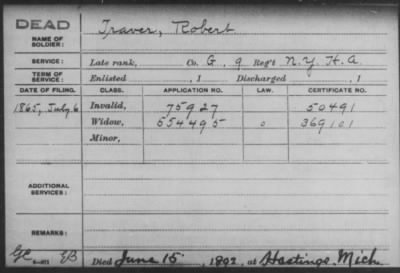 DEAD
NAME OF SOLDIER: Traver, Robert
SERVICE: Late rank, Co. G, 9 Reg't N.Y. H.A.
TERM OF SERVICE: Enlisted , 1 Discharged , 1
DATE OF FILING. CLASS. APPLICATION NO. LAW. CERTIFICATE NO.
1865, July 6 Invalid, 75927 50491
Widow, 554495 0 369101
Minor,
ADDITIONAL SERVICES:
REMARKS:
Died June 15, 1892, at Hastings, Mich